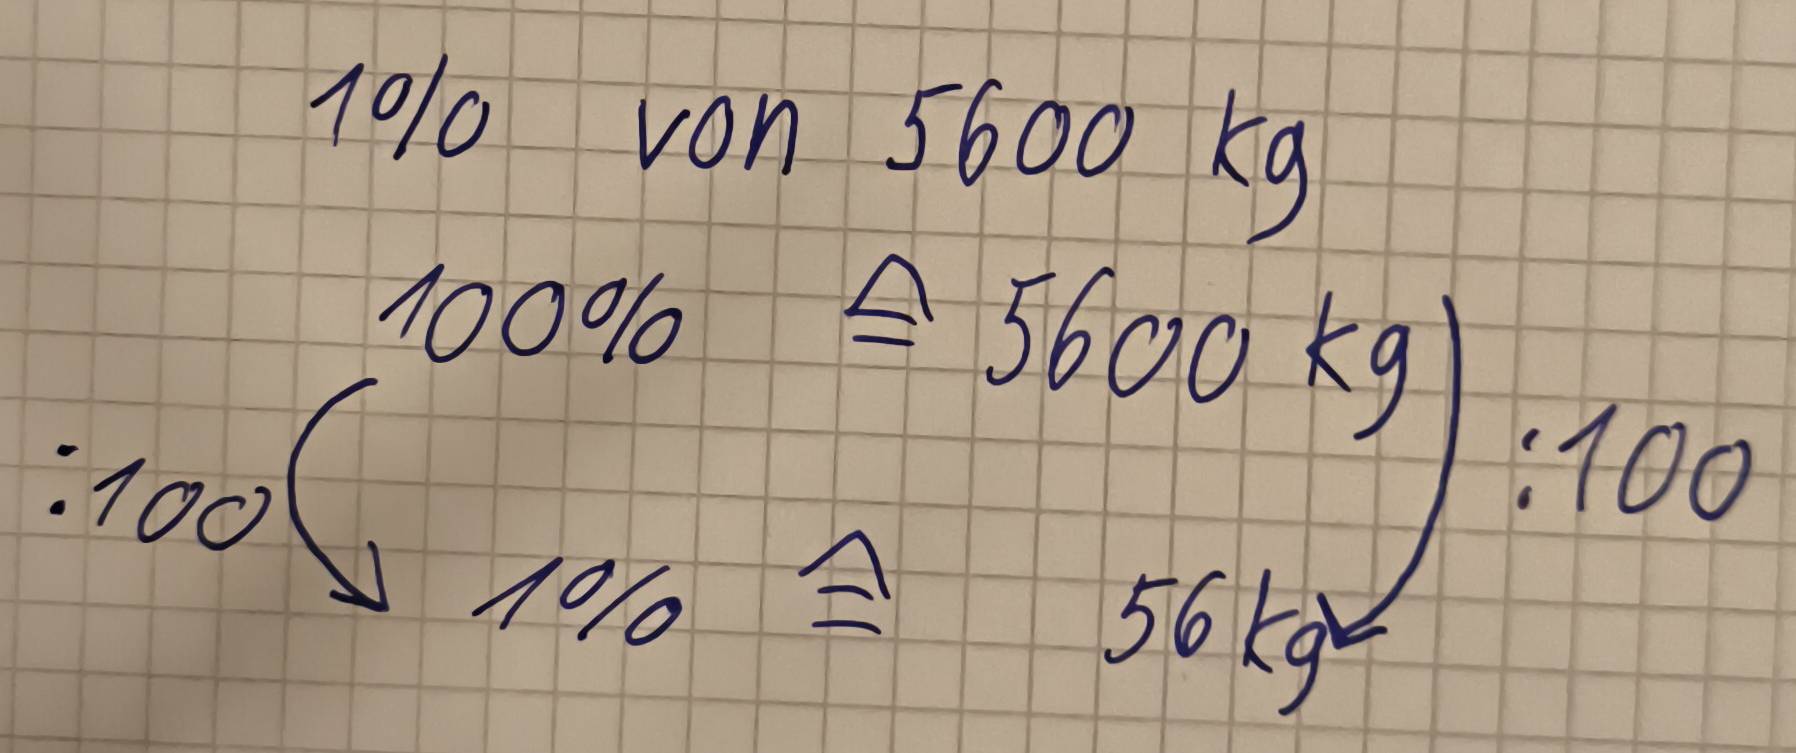 1% von 5600 kg
100% ≙ 5600 kg
:100 :100
1% ≙ 56 kg